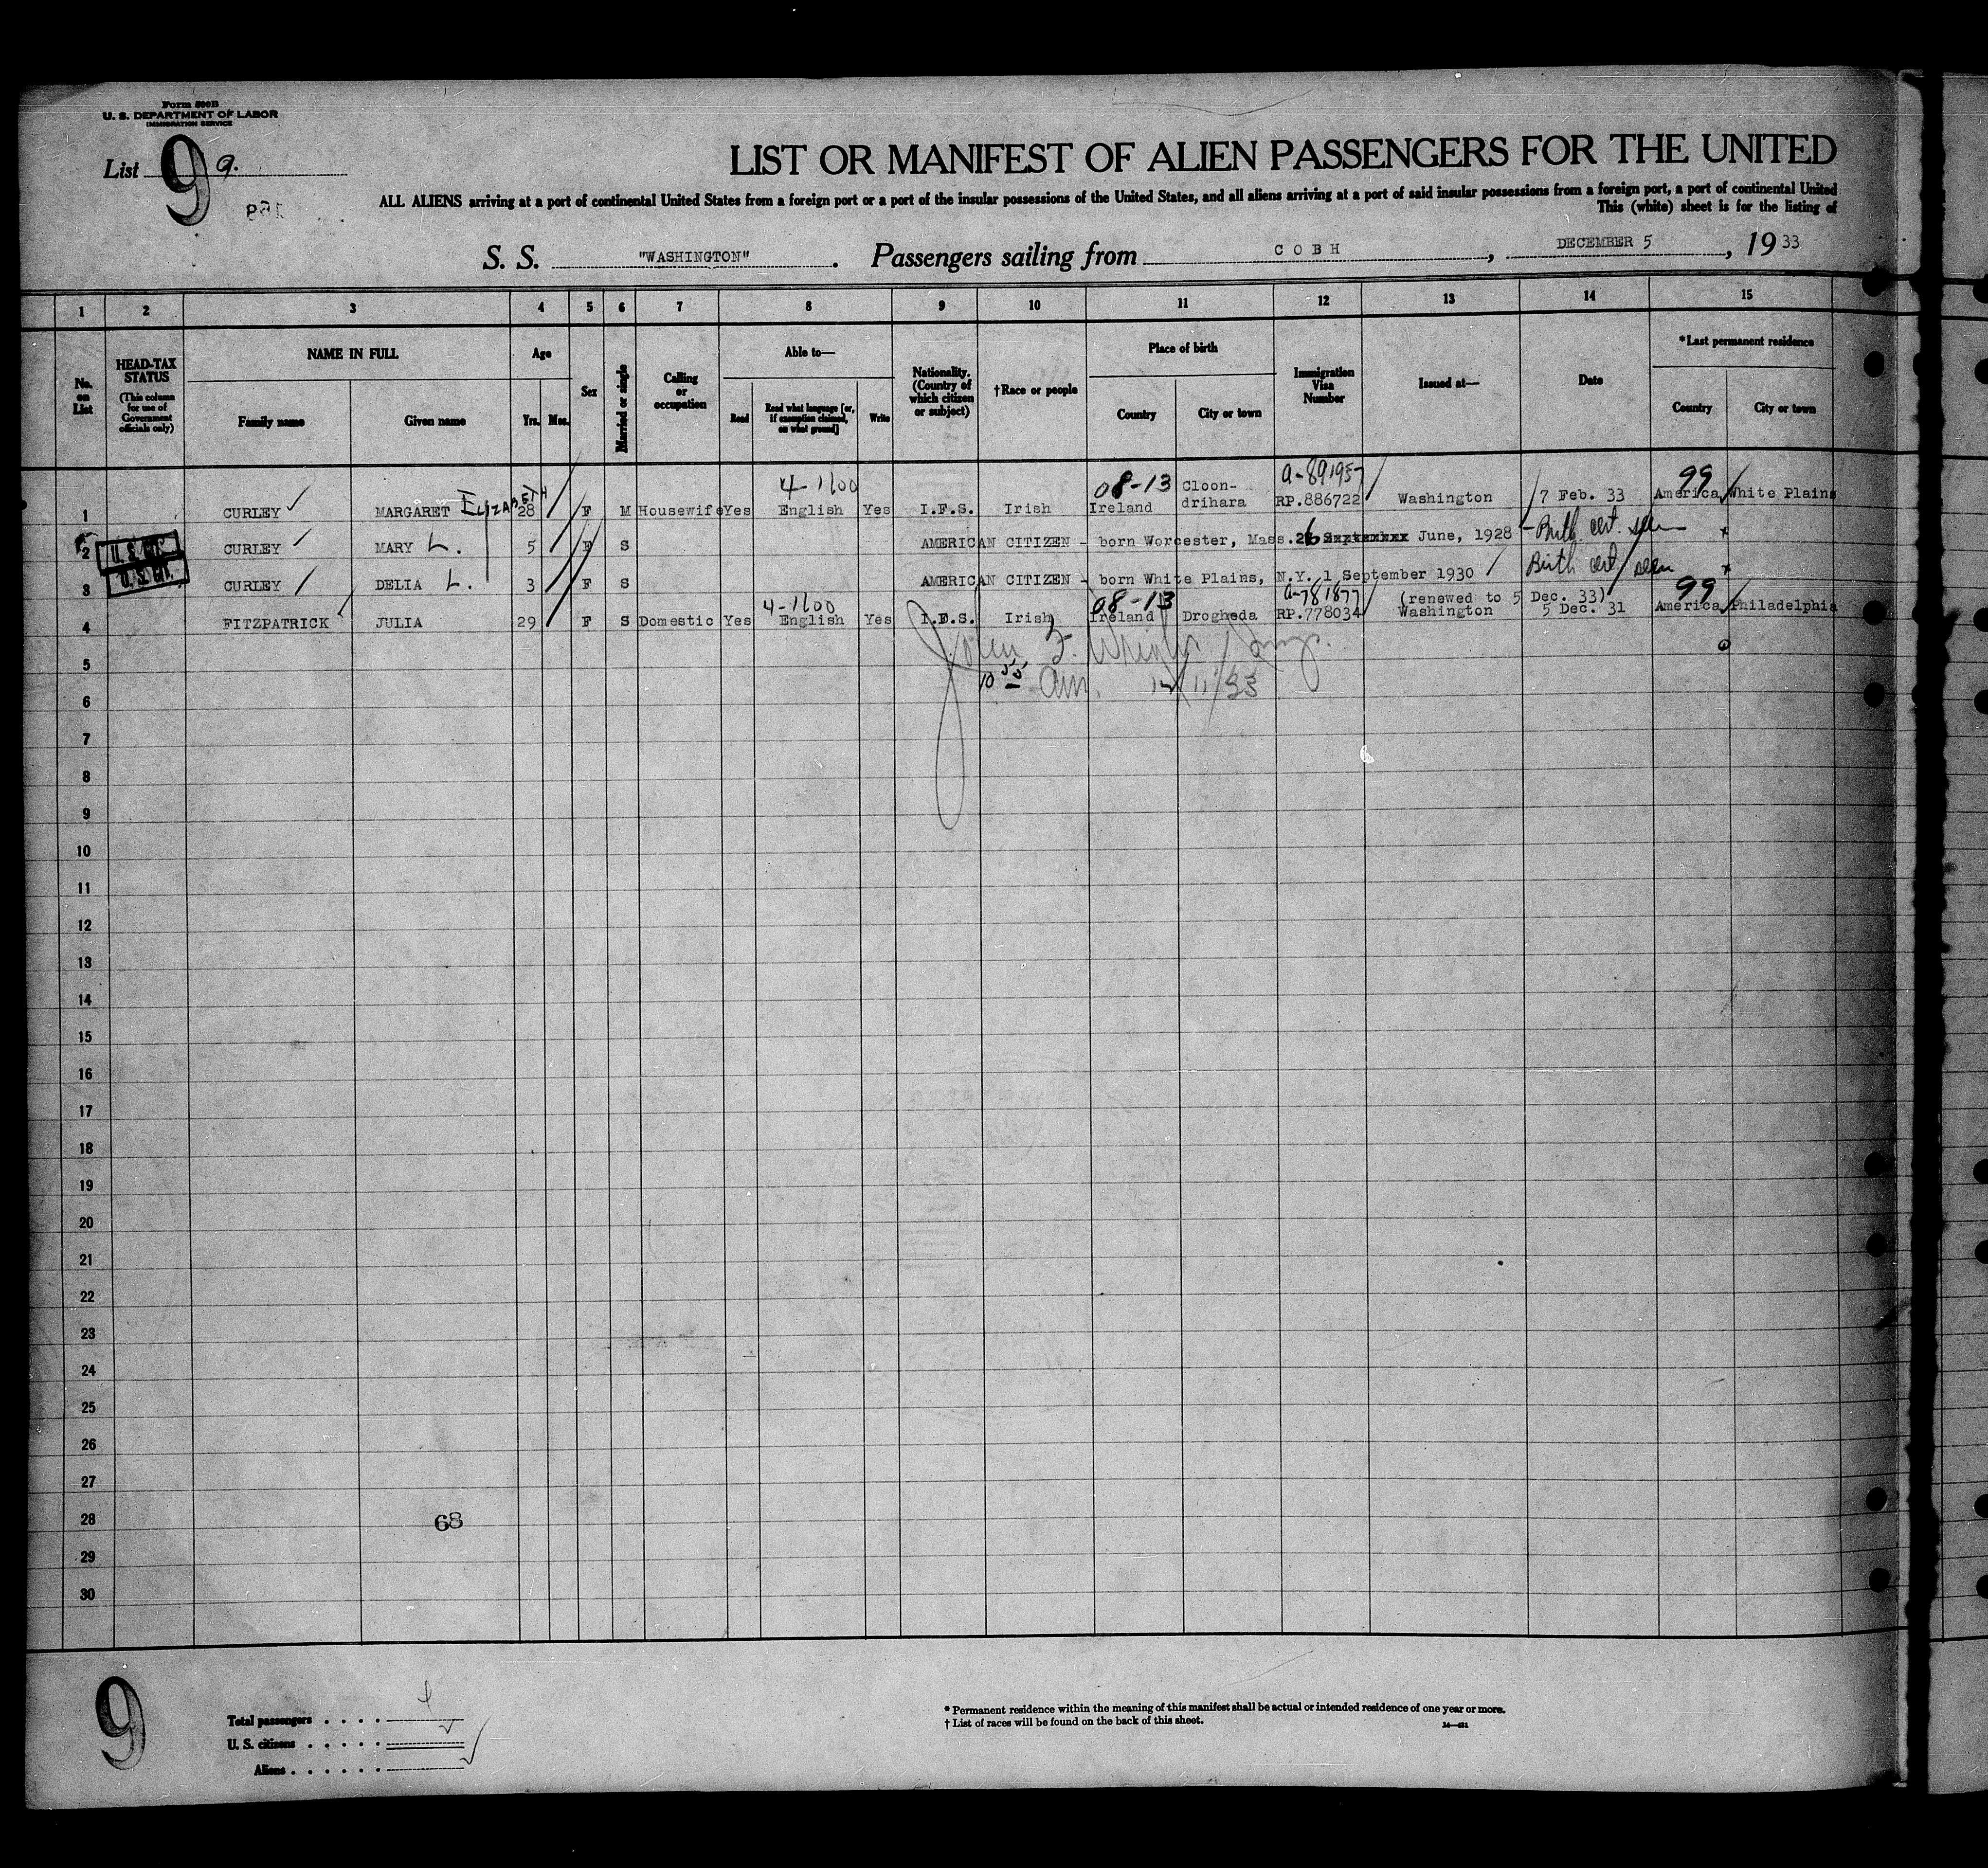 Form 500B
U. S. DEPARTMENT OF LABOR
IMMIGRATION SERVICE
List 9 9.
LIST OR MANIFEST OF ALIEN PASSENGERS FOR THE UNITED
ALL ALIENS arriving at a port of continental United States from a foreign port or a port of the insular possessions of the United States, and all aliens arriving at a port of said insular possessions from a foreign port, a port of continental United
This (white) sheet is for the listing of
S. S. "WASHINGTON". Passengers sailing from COBH, DECEMBER 5, 19 33
1 2 3 4 5 6 7 8 9 10 11 12 13 14 15
No. on List
HEAD-TAX STATUS (This column for use of Government officials only)
NAME IN FULL
Family name Given name
Age
Yrs. Mos.
Sex
Married or single
Calling or occupation
Able to—
Read Read what language [or, if exemption claimed, on what ground] Write
Nationality. (Country of which citizen or subject)
†Race or people
Place of birth
Country City or town
Immigration Visa Number
Issued at—
Date
*Last permanent residence
Country City or town
4-1600 08-13 Cloon- a-891957 99
1 CURLEY MARGARET ELIZABETH 28 F M Housewife Yes English Yes I.F.S. Irish Ireland drihara RP.886722 Washington 7 Feb. 33 America White Plains
2 U.S. CIT. CURLEY MARY L. 5 F S AMERICAN CITIZEN - born Worcester, Mass. 26 June, 1928 - Birth cert. seen
3 U.S. CIT. CURLEY DELIA L. 3 F S AMERICAN CITIZEN - born White Plains, N.Y. 1 September 1930 Birth cert seen
4-1600 08-13 a-781877 (renewed to 5 Dec. 33) 99
4 FITZPATRICK JULIA 29 F S Domestic Yes English Yes I.F.S. Irish Ireland Drogheda RP.778034 Washington 5 Dec. 31 America Philadelphia
5
10 55 Am. 12/11/33
6
7
8
9
10
11
12
13
14
15
16
17
18
19
20
21
22
23
24
25
26
27
28
68
29
30
9
Total passengers . . . .
U. S. citizens . . . . .
Aliens . . . . . .
* Permanent residence within the meaning of this manifest shall be actual or intended residence of one year or more.
† List of races will be found on the back of this sheet.